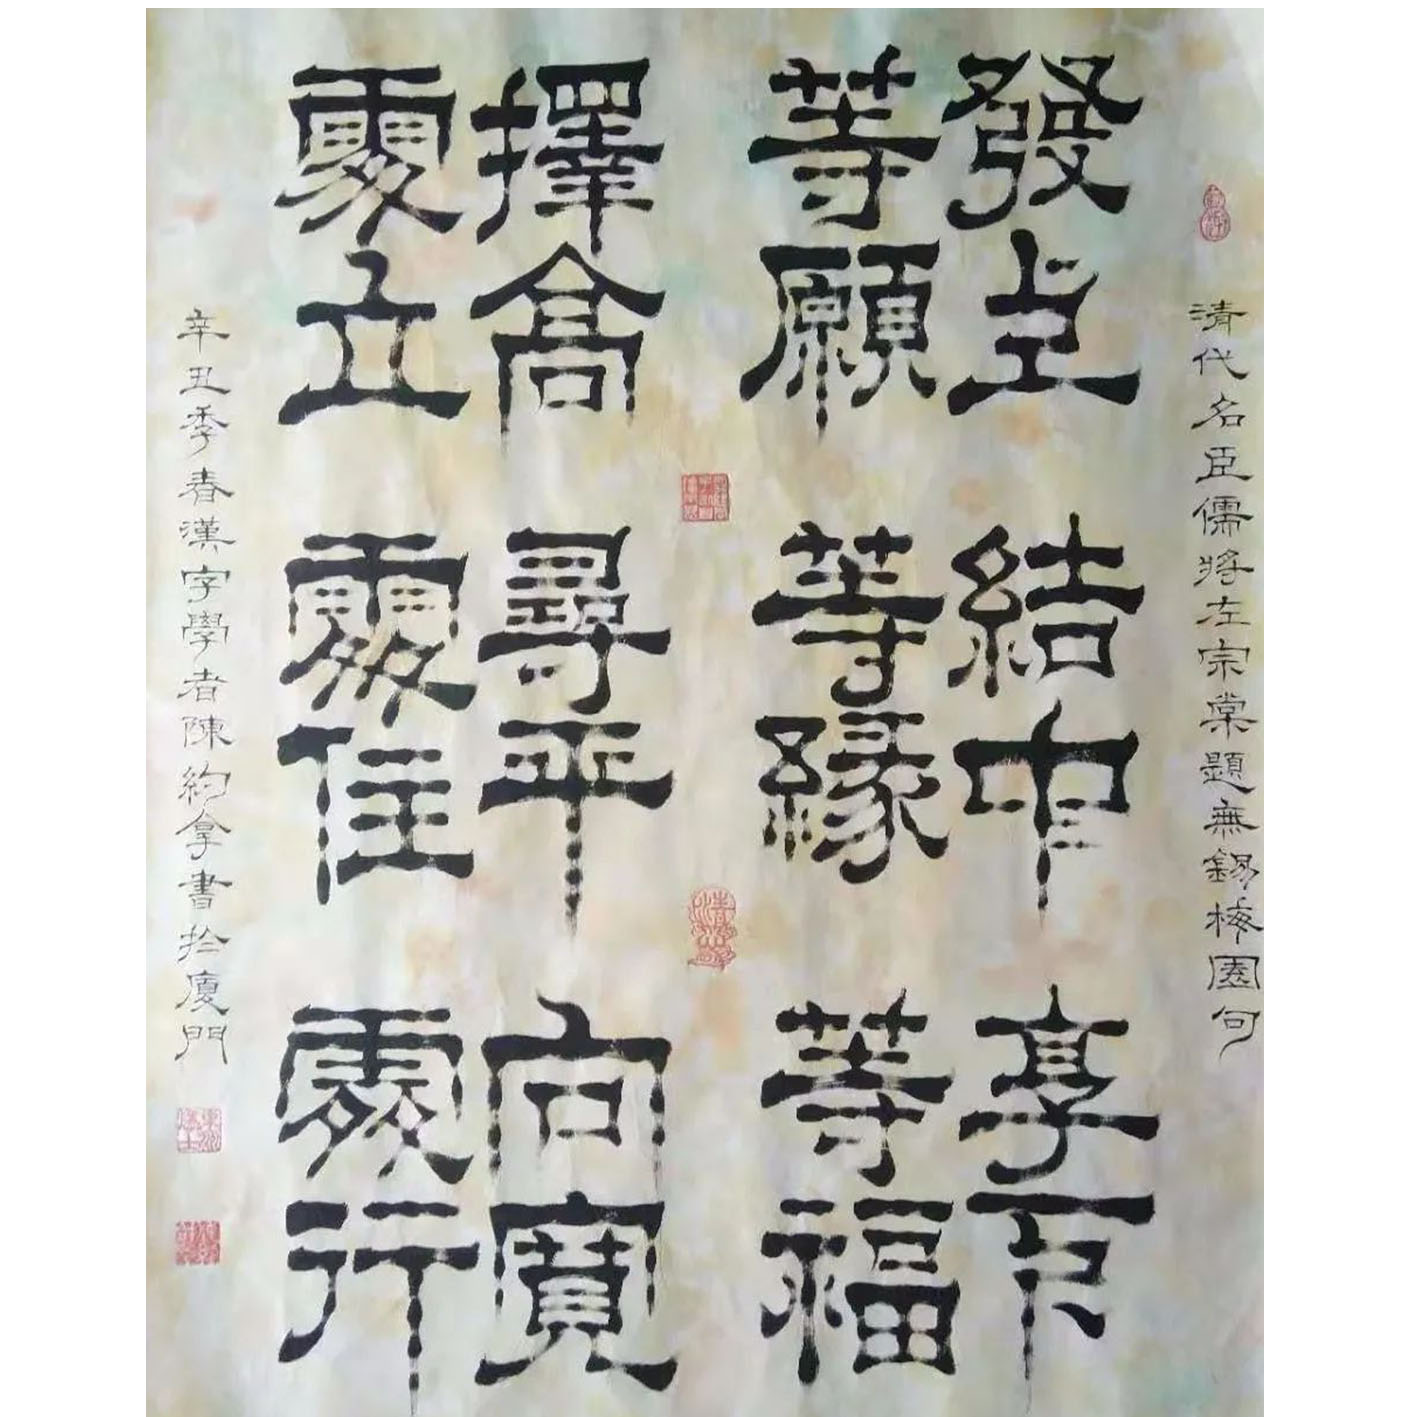 清代名臣儒將左宗棠題無錫梅園句
發上
等願
結中
等緣
享下
等福
擇高
處立
尋平
處住
向寬
處行
辛丑季春漢字學者陳約拿書扵廈門